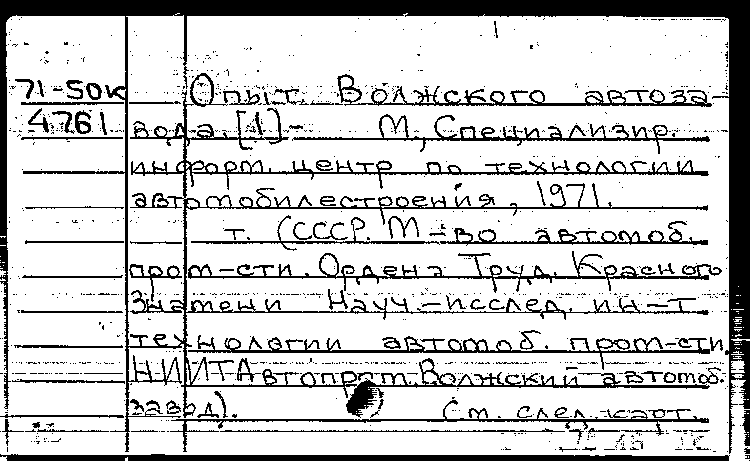 71-50к Опыт Волжского автоза-
4761 вода. [1] - М., Специализир.
информ. центр по технологии
автомобилестроения, 1971.
т. (СССР. М-во автомоб.
пром-сти. Ордена Труд. Красного
Знамени Науч.-исслед. ин-т
технологии автомоб. пром-сти
НИИТАвтопром. Волжский автомоб.
завод).
См. след. карт.